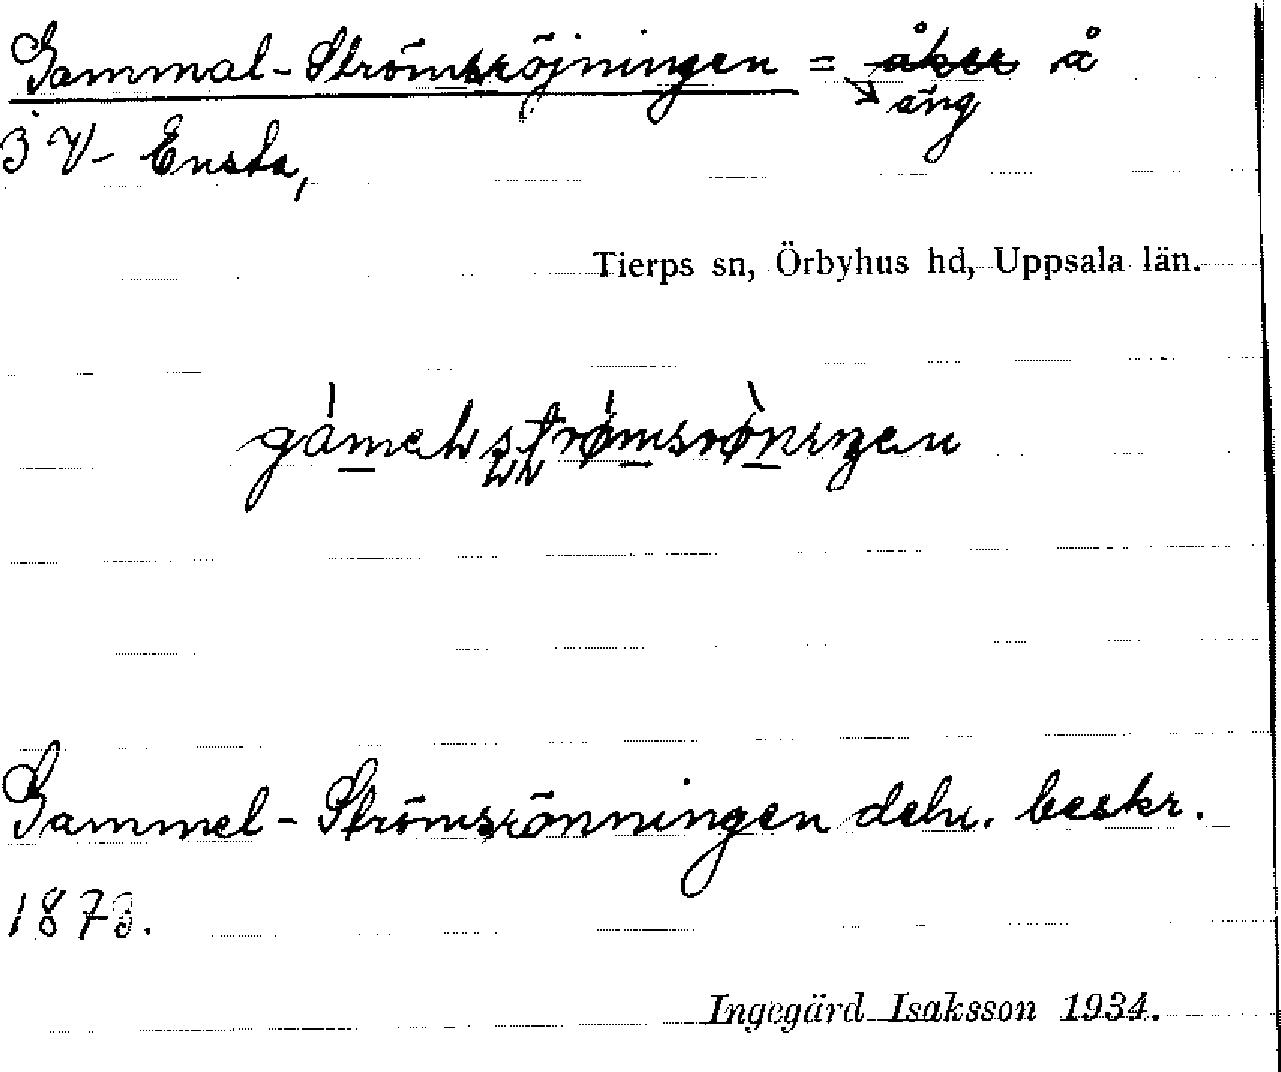 Gammal-Strömsröjningen = åker å
äng
3 V- Ensta,
Tierps sn, Örbyhus hd, Uppsala län.
Gammel-Strömsrönningen deln. beskr.
1873.
Ingegärd Isaksson 1934.